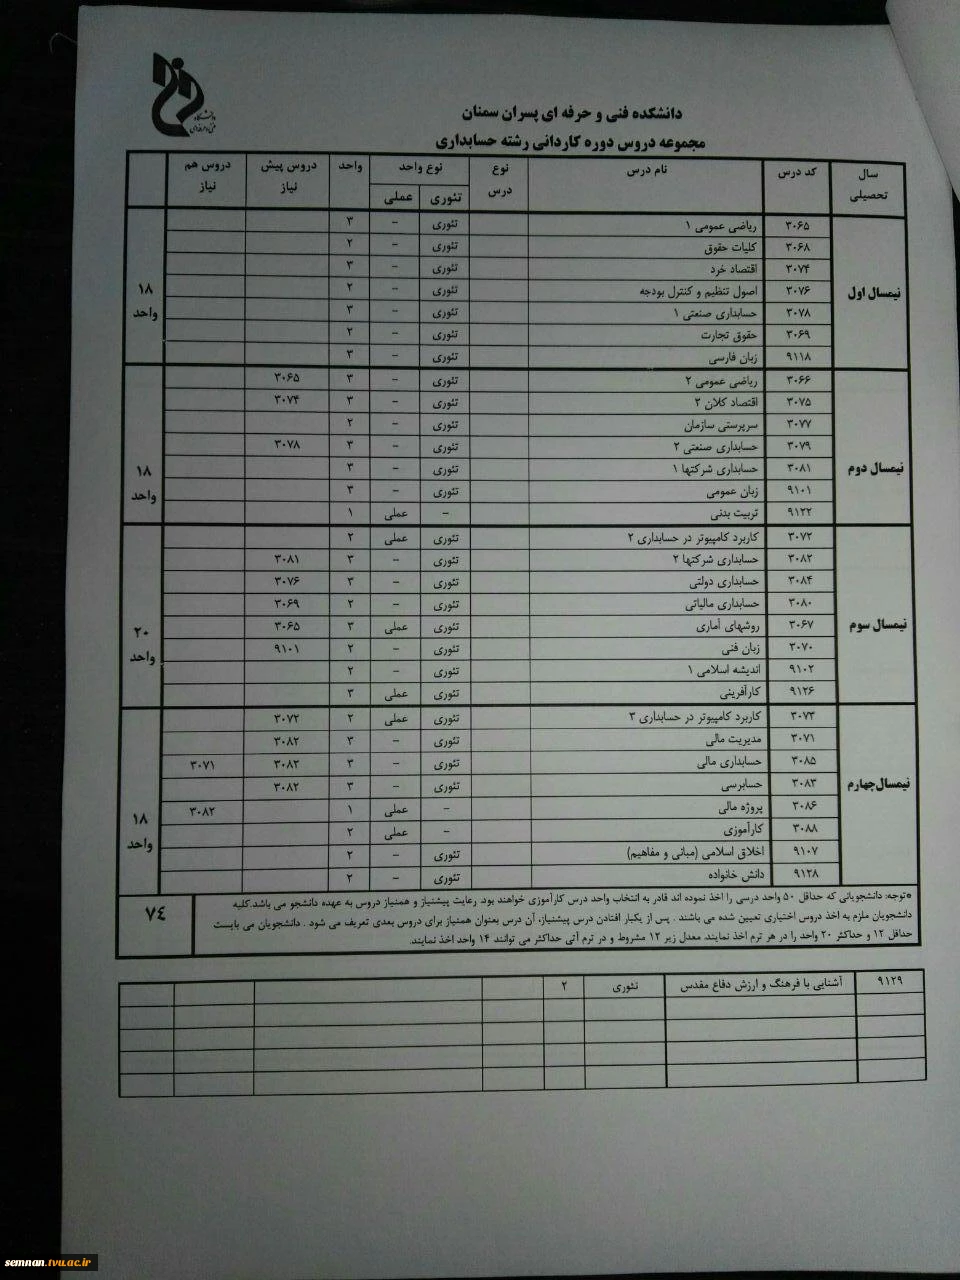 دانشگاه
فنی و حرفه‌ای
دانشکده فنی و حرفه ای پسران سمنان
مجموعه دروس دوره کاردانی رشته حسابداری
سال تحصیلی | کد درس | نام درس | نوع درس | نوع واحد | واحد | دروس پیش نیاز | دروس هم نیاز
تئوری | عملی
نیمسال اول
۳۰۶۵ ریاضی عمومی ۱ تئوری - ۳
۳۰۶۸ کلیات حقوق تئوری - ۲
۳۰۷۴ اقتصاد خرد تئوری - ۳
۳۰۷۶ اصول تنظیم و کنترل بودجه تئوری - ۲
۳۰۷۸ حسابداری صنعتی ۱ تئوری - ۳
۳۰۶۹ حقوق تجارت تئوری - ۲
۹۱۱۸ زبان فارسی تئوری - ۳
۱۸ واحد
نیمسال دوم
۳۰۶۶ ریاضی عمومی ۲ تئوری - ۳ ۳۰۶۵
۳۰۷۵ اقتصاد کلان ۲ تئوری - ۳ ۳۰۷۴
۳۰۷۷ سرپرستی سازمان تئوری - ۲
۳۰۷۹ حسابداری صنعتی ۲ تئوری - ۳ ۳۰۷۸
۳۰۸۱ حسابداری شرکتها ۱ تئوری - ۳
۹۱۰۱ زبان عمومی تئوری - ۳
۹۱۲۲ تربیت بدنی - عملی ۱
۱۸ واحد
نیمسال سوم
۳۰۷۲ کاربرد کامپیوتر در حسابداری ۲ تئوری عملی ۲
۳۰۸۲ حسابداری شرکتها ۲ تئوری - ۳ ۳۰۸۱
۳۰۸۴ حسابداری دولتی تئوری - ۳ ۳۰۷۶
۳۰۸۰ حسابداری مالیاتی تئوری - ۲ ۳۰۶۹
۳۰۶۷ روشهای آماری تئوری عملی ۳ ۳۰۶۵
۳۰۷۰ زبان فنی تئوری - ۲ ۹۱۰۱
۹۱۰۲ اندیشه اسلامی ۱ تئوری - ۲
۹۱۲۶ کارآفرینی تئوری عملی ۳
۲۰ واحد
نیمسال چهارم
۳۰۷۳ کاربرد کامپیوتر در حسابداری ۳ تئوری عملی ۲ ۳۰۷۲
۳۰۷۱ مدیریت مالی تئوری - ۳ ۳۰۸۲
۳۰۸۵ حسابداری مالی تئوری - ۳ ۳۰۸۲ ۳۰۷۱
۳۰۸۳ حسابرسی تئوری - ۳ ۳۰۸۲
۳۰۸۶ پروژه مالی - عملی ۱ ۳۰۸۲
۳۰۸۸ کارآموزی - عملی ۲
۹۱۰۷ اخلاق اسلامی (مبانی و مفاهیم) تئوری - ۲
۹۱۲۸ دانش خانواده تئوری - ۲
۱۸ واحد
*توجه: دانشجویانی که حداقل ۵۰ واحد درسی را اخذ نموده اند قادر به انتخاب واحد درس کارآموزی خواهند بود. رعایت پیشنیاز و همنیاز دروس به عهده دانشجو می باشد.کلیه
دانشجویان ملزم به اخذ دروس اختیاری تعیین شده می باشند . پس از یکبار افتادن درس پیشنیاز، آن درس بعنوان همنیاز برای دروس بعدی تعریف می شود . دانشجویان می بایست
حداقل ۱۲ و حداکثر ۲۰ واحد را در هر ترم اخذ نمایند. معدل زیر ۱۲ مشروط و در ترم آتی حداکثر می توانند ۱۴ واحد اخذ نمایند.
۷۴
۹۱۲۹ آشنایی با فرهنگ و ارزش دفاع مقدس تئوری ۲
semnan.tvu.ac.ir